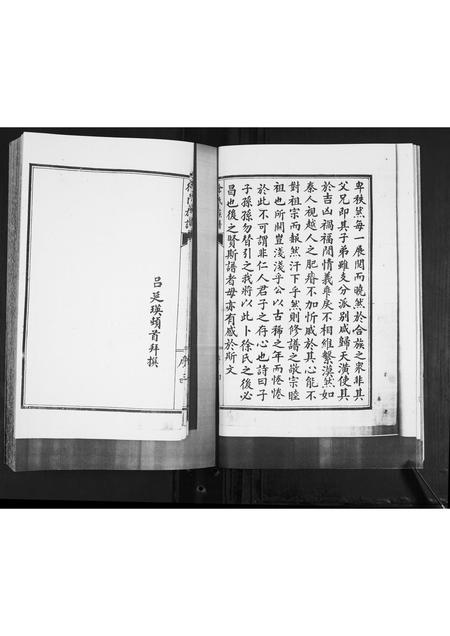 卑秩然每一展閱而曉然於合族之衆非其
父兄即其子弟雖支分派別咸歸天潢使其
於吉凶禍福間情義乖矣不相維繫漠然如
秦人視越人之肥瘠不加忻戚於其心能不
對祖宗而赧然汗下乎然則修譜之敬宗睦
祖也所關豈淺淺乎公以古稀之年而惓惓
於此不可謂非仁人君子之存心也詩曰子
子孫孫勿替引之我將以此卜徐氏之後必
昌也後之賢斯譜者毋亦有感於斯文
氏族譜
呂延瑛頓首拜撰